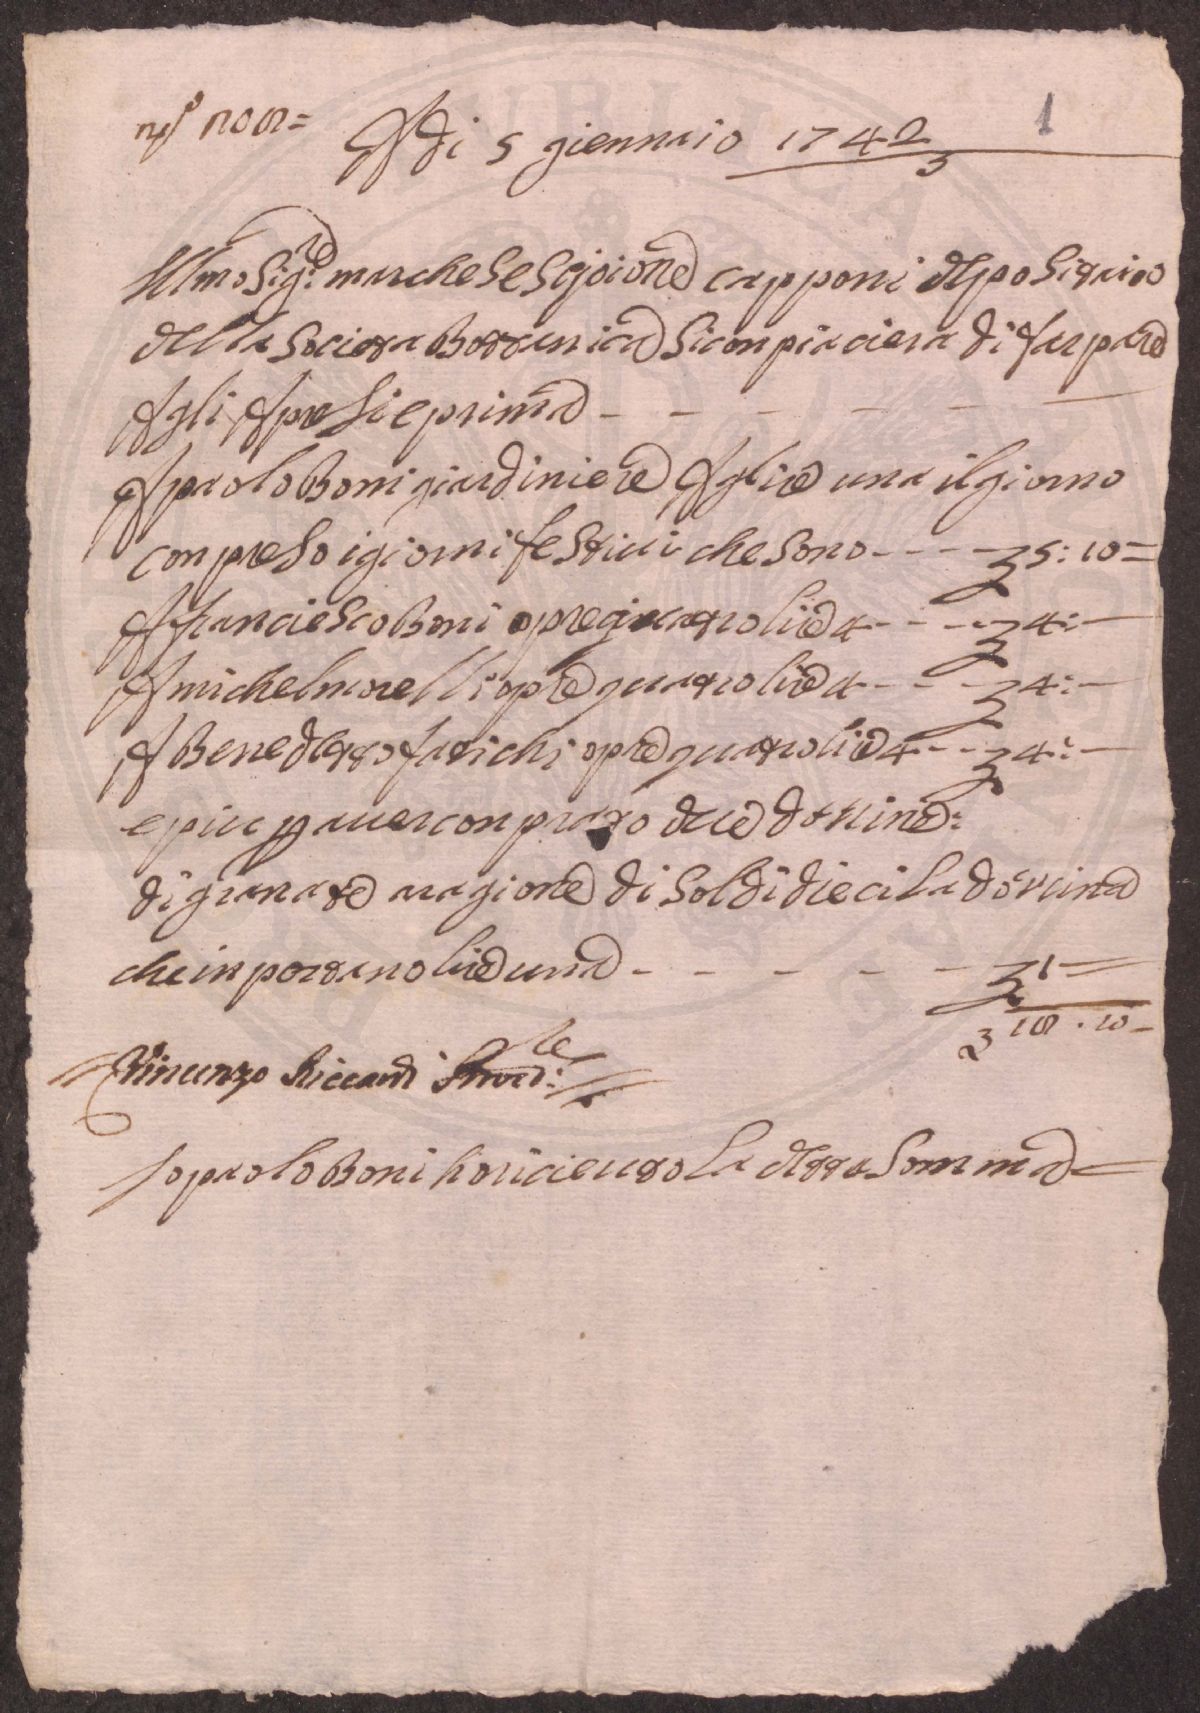 Adi 5 giennaio 1742/3
1
Ill.mo Sig.re marchese Scipione capponi depositario
della Societa Bottanica Si conpiaciera di far pagare
Agli Apresi e prima - - - - - -
A paolo Boni giardiniere A lire una il giorno
conpreso i giorni festivi che sono - - - - 5: 10 =
A franciesco Boni opre quatro lire 4 - - - - 4: -
A michel morelli opre quatro lire 4 - - - 4: -
A Benedetto farichi opre quatro lire 4 - - - 4: -
e piu p aver conprato due dozzine:
di granate a ragione di Soldi dieci La dozzina
che inportano lire una - - - - - 1 =
18 . 10 -
Vincenzo Riccardi Provd:re
Io paolo Boni ho riceuto La detta Somma =